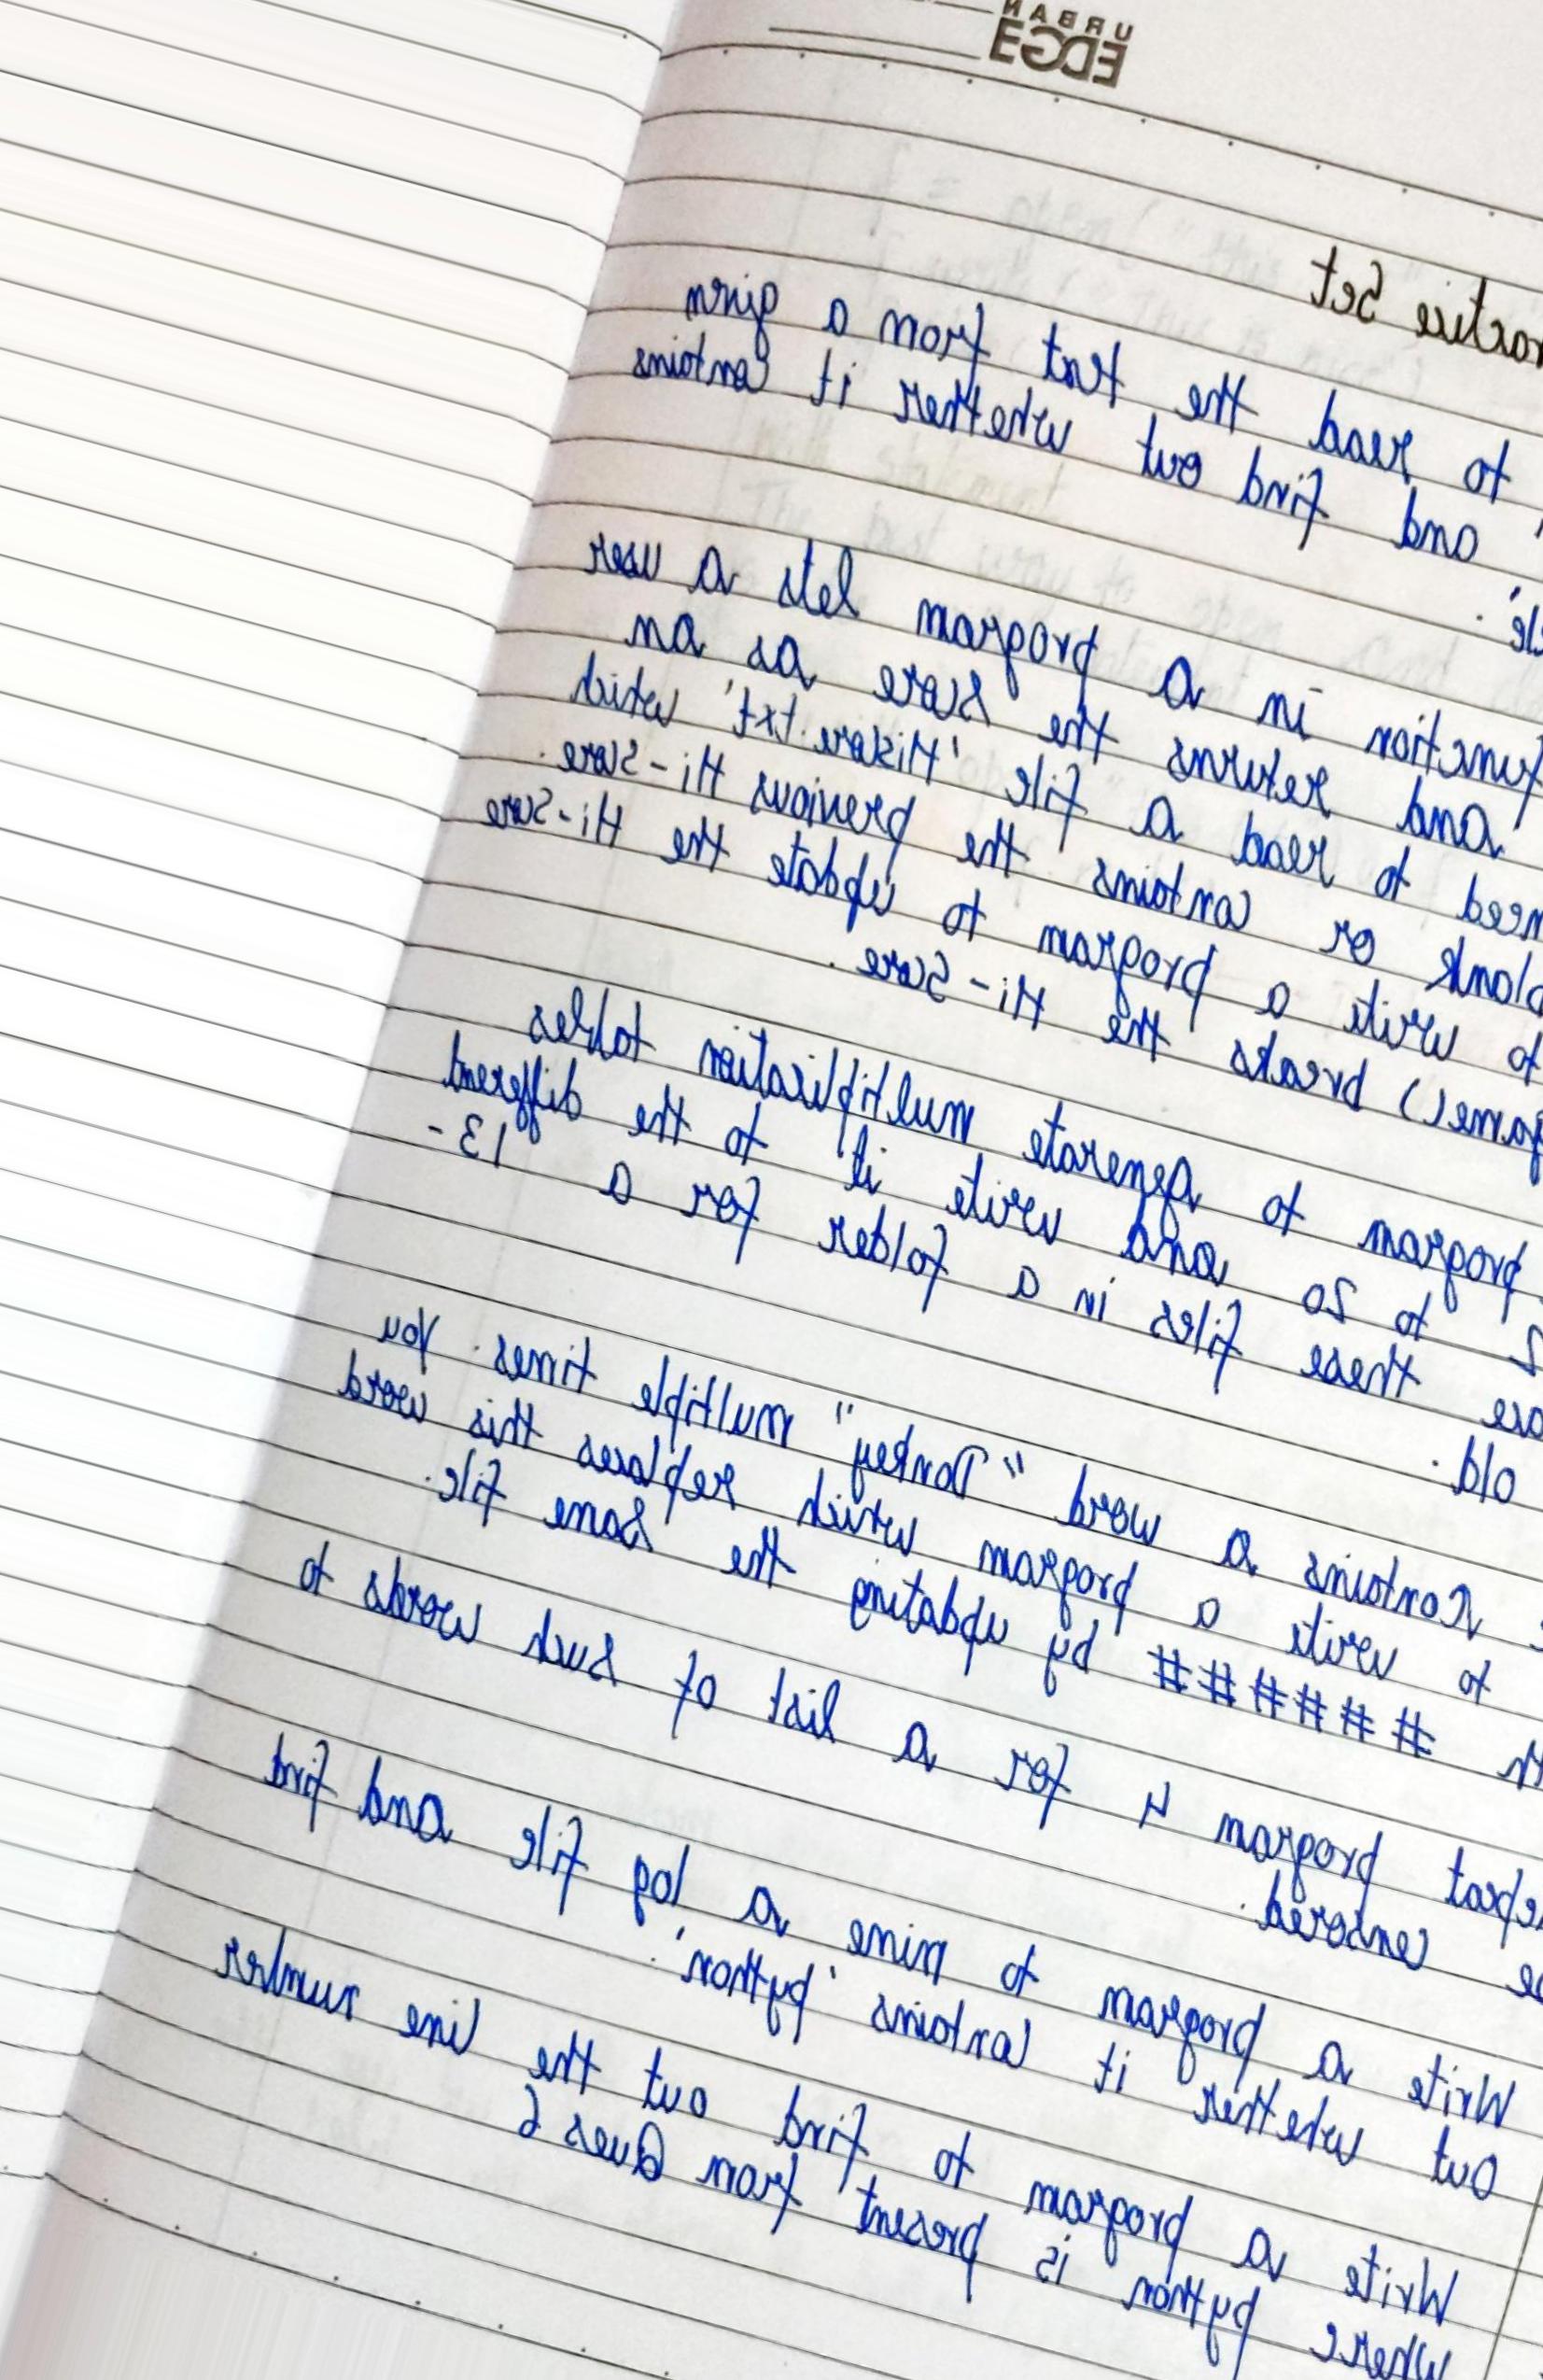 URBAN
EDGE
Set
to read the text from a given
and find out whether it contains
function in a program lets a user
and returns the score as an
need to read a file 'Hiscore.txt' which
blank or contains the previous Hi-Score.
to write a program to update the Hi-Score
game() breaks the Hi-Score.
program to generate multiplication tables
2 to 20 and write it to the differend
these files in a folder for a 13-
old.
contains a word "Donkey" multiple times. You
to write a program which replaces this word
###### by updating the same file.
program 4 for a list of such words to
censored.
Write a program to mine a log file and find
out whether it contains 'python'.
Write a program to find out the line number
where python is present from Ques 6